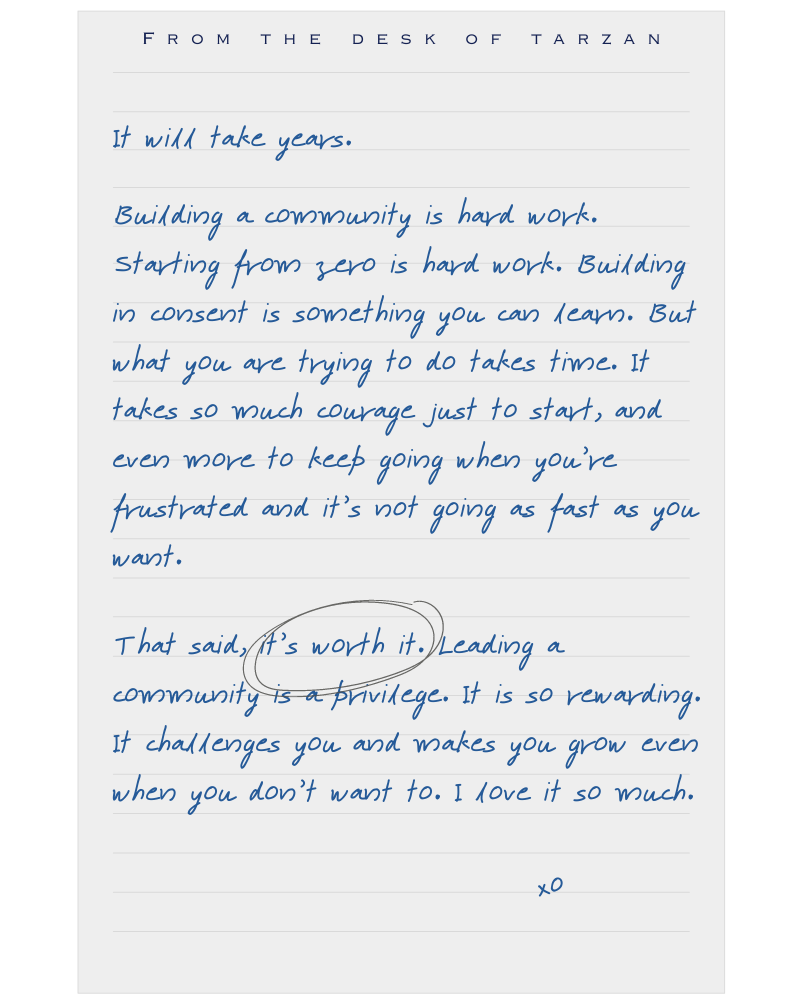 FROM THE DESK OF TARZAN
It will take years.
Building a community is hard work.
Starting from zero is hard work. Building
in consent is something you can learn. But
what you are trying to do takes time. It
takes so much courage just to start, and
even more to keep going when you're
frustrated and it's not going as fast as you
want.
That said, it's worth it. Leading a
community is a privilege. It is so rewarding.
It challenges you and makes you grow even
when you don't want to. I love it so much.
xo